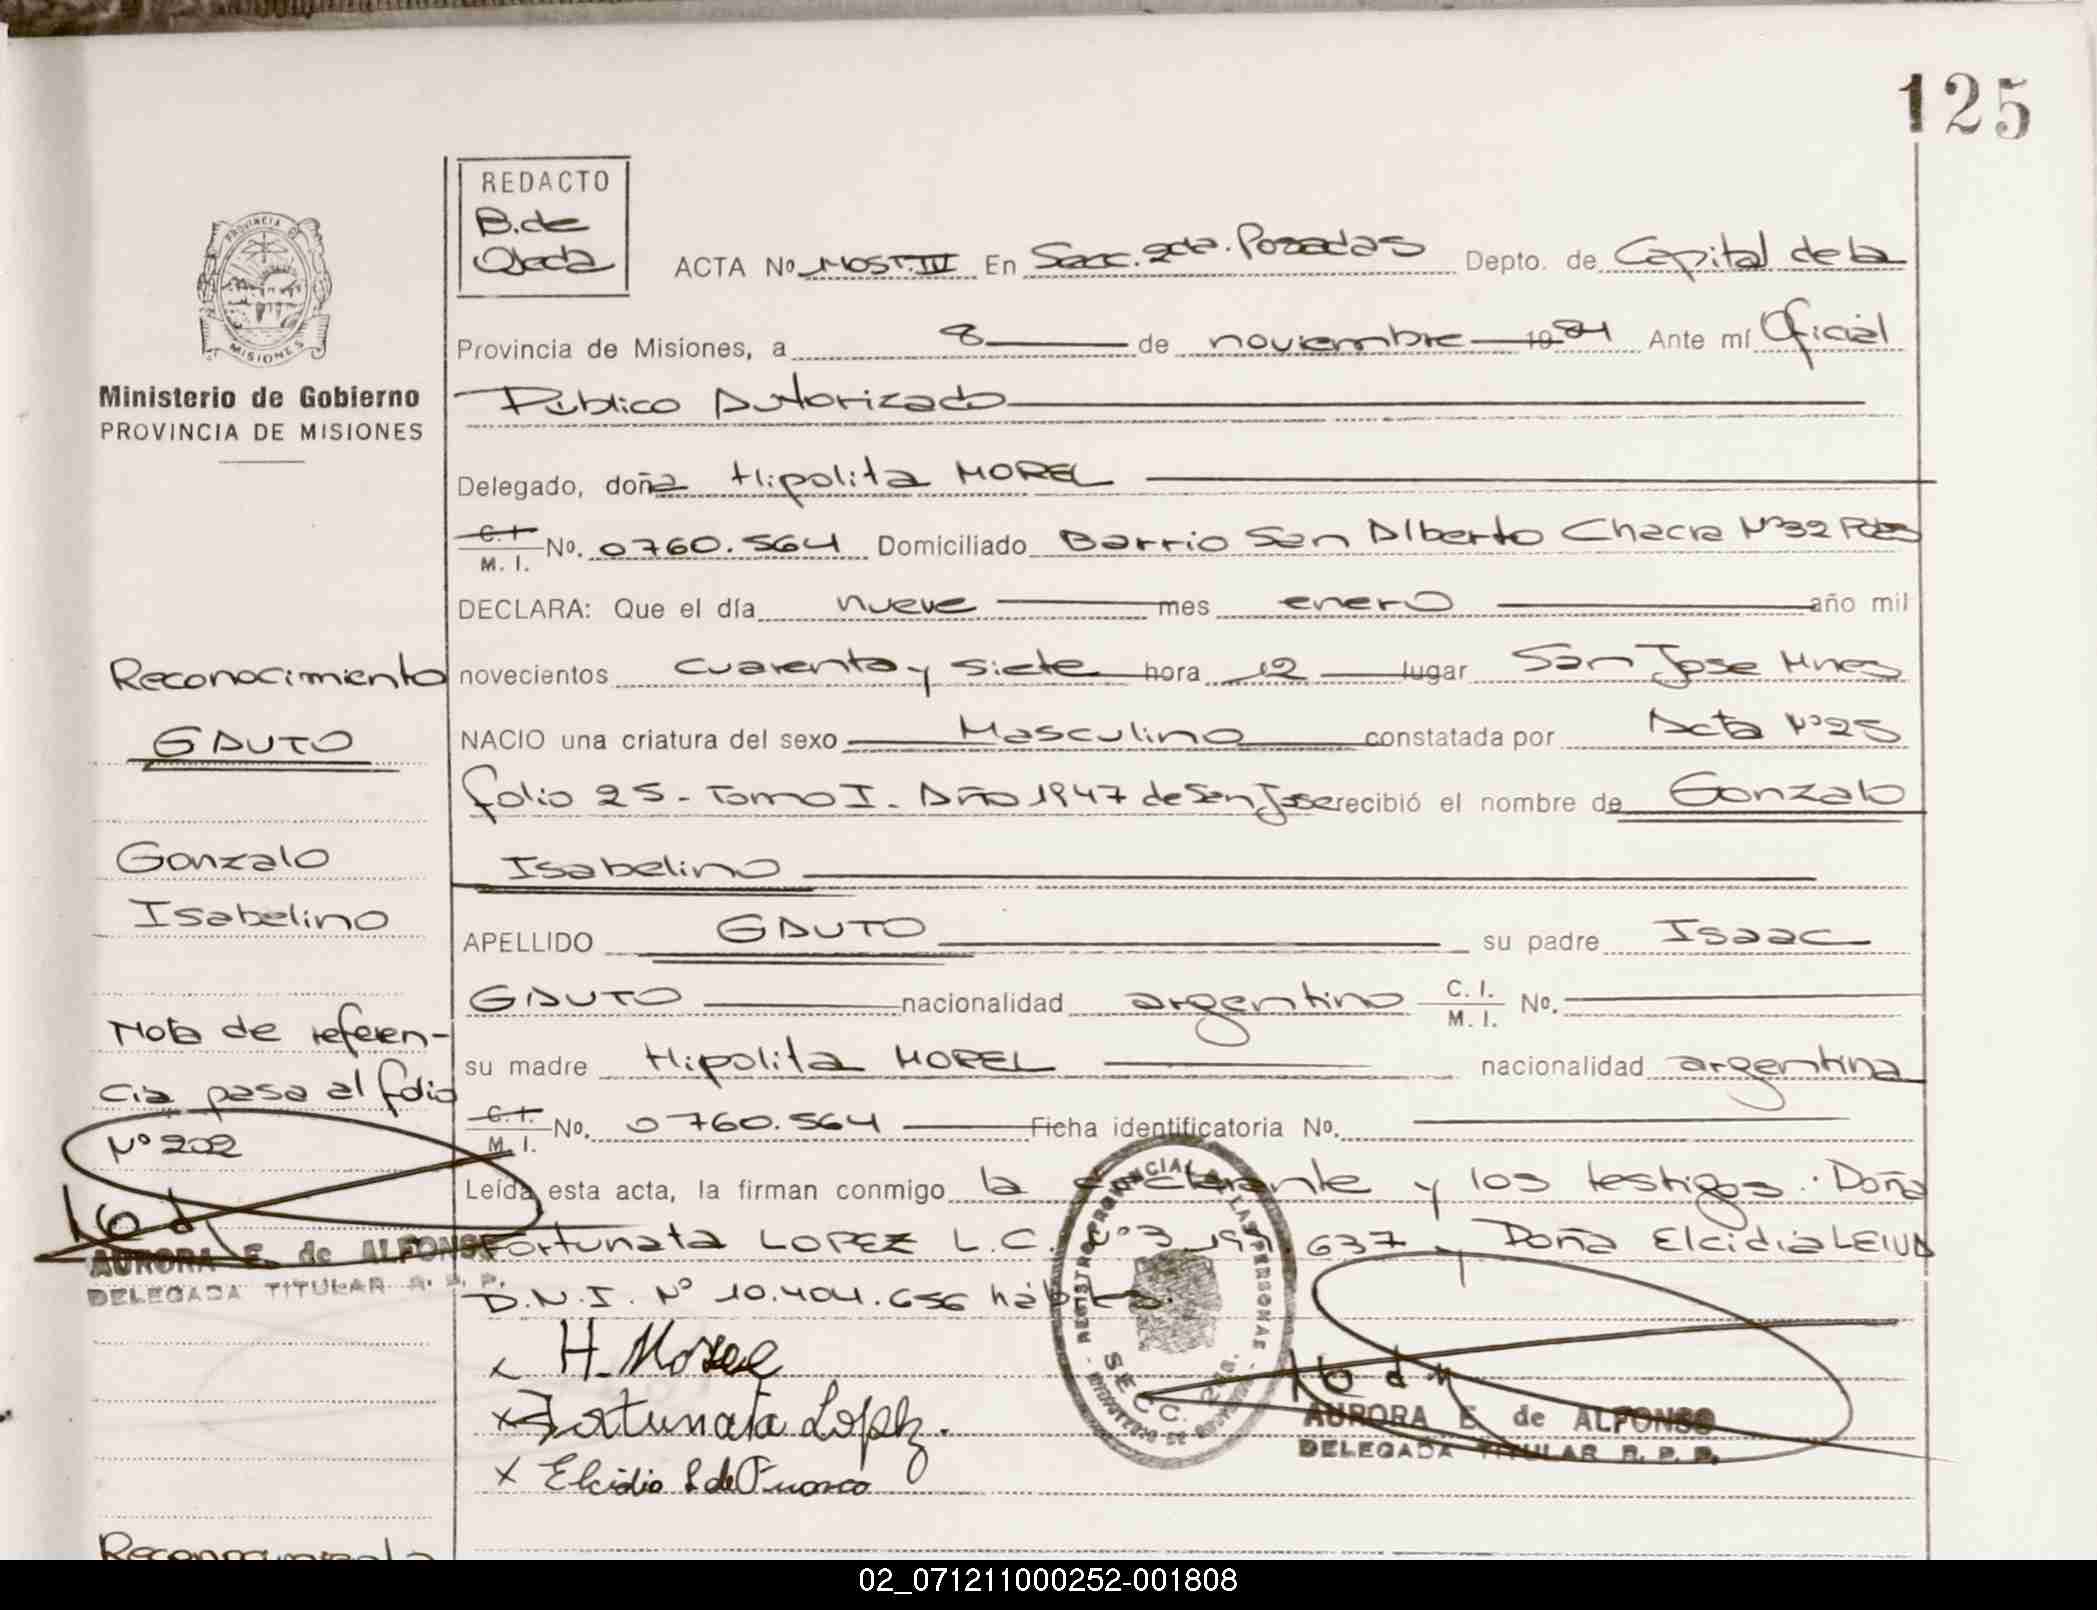 125
REDACTO
B. de
Ojeda
ACTA Nº 110ST.IV En Secc. 2da. Posadas Depto. de Capital de la
Provincia de Misiones, a 8 de noviembre 1984 Ante mí Oficial
Público Autorizado
Delegado, doña Hipolita MOREL
C. I. M. I. No. 0760.564 Domiciliado Barrio San Alberto Chacra Nº32 Pdas
DECLARA: Que el día nueve mes enero año mil
novecientos cuarenta y siete hora 12 lugar San Jose Mnes
NACIO una criatura del sexo Masculino constatada por Acta Nº25
folio 25 - Tomo I. Año 1947 de San Jose recibió el nombre de Gonzalo
Isabelino
APELLIDO GAUTO su padre Isaac
GAUTO nacionalidad argentino C. I. M. I. No.
su madre Hipolita MOREL nacionalidad argentina
C. I. M. I. No. 0760.564 Ficha identificatoria No.
Leída esta acta, la firman conmigo la declarante y los testigos: Doña
Fortunata LOPEZ L.C. Nº3.199.637 y Doña Elcidia LEIVA
D.N.I. Nº 10.404.656 hábiles.
x H. Morel
x Fortunata Lopez.
x Elcidia L de
PROVINCIA DE
MISIONES
Ministerio de Gobierno
PROVINCIA DE MISIONES
Reconocimiento
GAUTO
Gonzalo
Isabelino
Nota de referen-
cia pasa al folio
Nº 202
AURORA E. de ALFONSO
DELEGADA TITULAR R. P. P.
REGISTRO PROVINCIAL DE LAS PERSONAS
SECC. 2da.
AURORA E de ALFONSO
DELEGADA TITULAR R. P. P.
Reconocimiento
02_071211000252-001808